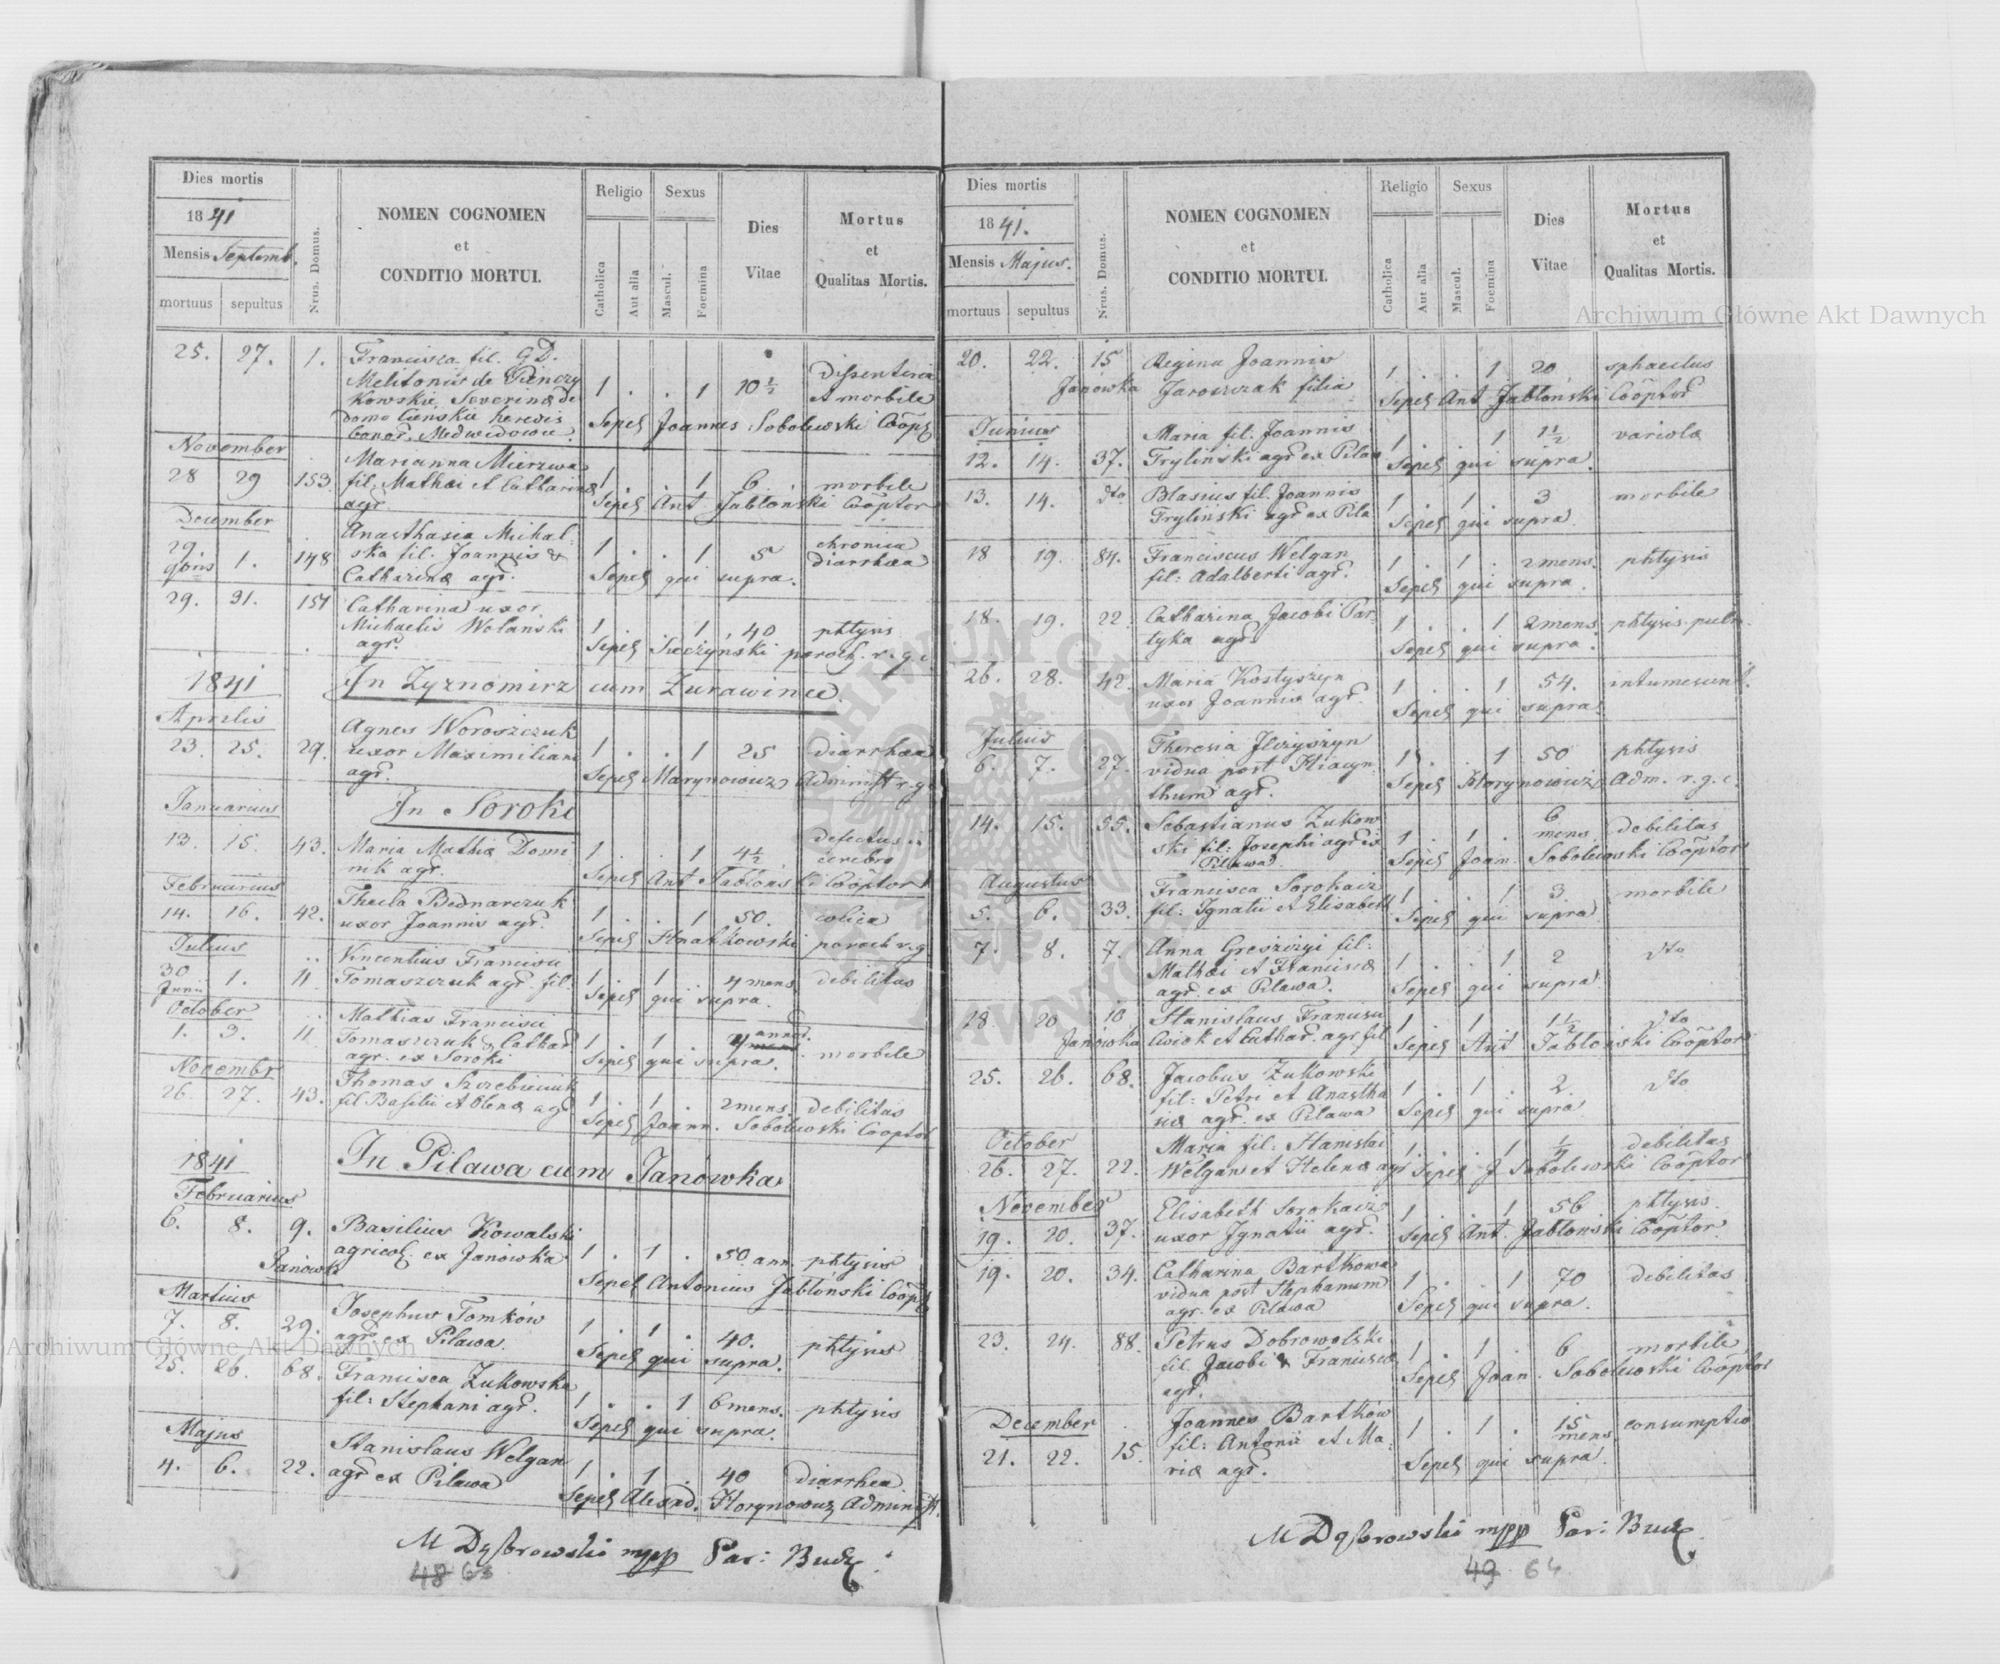 Dies mortis
1841
Mensis Septemb.
mortuus sepultus
Nrus. Domus.
NOMEN COGNOMEN
et
CONDITIO MORTUI.
Religio
Catholica
Aut alia
Sexus
Mascul.
Foemina
Dies
Vitae
Mortus
et
Qualitas Mortis.
25. 27. 1. Francisca fil. G.D.
Melitonis de
Kowskie Severinæ de
domo heredis
bonor. Medwedowce.
1 . . 1 10½ dissenteria
et morbile
Sepel Joannes Sobolewski Coop
November
28 29 153. Marianna Mierzwa
fil. Mathæi et Catharinæ
agr.
1 . . 1 6 morbile
Sepel Ant Jabłonski Cooptor
December
29 9bris 1. 148 Anasthasia Michal-
ska fil. Joannis &
Catharinæ agr.
1 . . 1 5 chronica
diarrhæa
Sepel qui supra.
29. 31. 151 Catharina uxor
Michaelis Wolański
agr.
1 . . 1 40 phtysis
Sepel Sieczyński paroch. r. g. c.
1841 In Zyznomirz cum Zurawince.
Aprilis
23. 25. 29. Agnes Woroszczuk
uxor Maximiliani
agr.
1 . . 1 25 diarrhæa
Sepel Marynowicz Administ r. g.
In Soroki
Januarius
13. 15. 43. Maria Mathæ Domi
nik agr.
1 . . 1 4½ defectus in
cerebro
Sepel Ant Jablonski Cooptor
Februarius
14. 16. 42. Thecla Bednarczuk
uxor Joannis agr.
1 . . 1 50. colica
Sepel Hnatkowski paroch r. g.
Julius
30 Junii 1. 11 Vincentius Francisci
Tomaszczuk agr. fil.
1 . 1 . 4 mens debilitas
Sepel qui supra.
October
1. 3. 11 Mathias Francisci
Tomaszczuk & Cathar
agr. ex Soroki
1 . 1 . 4 annor. morbile
Sepel qui supra.
Novembr
26. 27. 43. Thomas
fil Basilii et Olenæ agr
1 . 1 . 2 mens. debilitas
Sepel Joann. Sobolewski Cooptor
1841 In Pilawa cum Janówka
Februarius
6. 8. 9. Janówki Basilius Kowalski
agricol. ex Janówka.
1 . 1 . 50. ann. phtysis
Sepel Antonius Jabłónski Coopt
Martius
7. 8. 29. Josephus Tomków
agr. ex Pilawa.
1 . 1 . 40. phtysis
Sepel qui supra.
25. 26. 68. Francisca Zukowska
fil: Stephani agr.
1 . . 1 6 mens. phtysis
Sepel qui supra.
Majus
4. 6. 22. Stanislaus Welgan
agr ex Pilawa
1 . 1 . 40 diarrhea
Sepel Alexad. Horynowicz Administ.
M Dąbrowski mpp Par: Bucz.
48 63
Dies mortis
1841.
Mensis Majus.
mortuus sepultus
Nrus. Domus.
NOMEN COGNOMEN
et
CONDITIO MORTUI.
Religio
Catholica
Aut alia
Sexus
Mascul.
Foemina
Dies
Vitae
Mortus
et
Qualitas Mortis.
20. 22. 15 Janówka Regina Joannis
Jaroszczak filia
1 . . 1 20 sphacelus
Sepel Ant Jabłónski Cooptor
Junius
12. 14. 37. Maria fil. Joannis
Trylinski agr ex Pilaw
1 . . 1 1½ variola
Sepel qui supra.
13. 14. dto Blasius fil. Joannis
Tryliński agr ex Pila
1 . 1 . 3 morbile
Sepel qui supra.
18 19. 84. Franciscus Welgan
fil: Adalberti agr.
1 . 1 . 2 mens. phtysis
Sepel qui supra.
18. 19. 22. Catharina Jacobi Par-
tyka agr
1 . . 1 2 mens phtysis pulm.
Sepel qui supra.
26. 28. 42. Maria Kostyszyn
uxor Joannis agr.
1 . . 1 54.
Sepel qui supra.
Julius
6. 7. 27. Theresia
vidua post Hiacyn-
thum agr.
1 . . 1 50 phtysis
Sepel Horynowicz Adm. r. g. c.
14. 15. 55. Sebastianus Zukow
ski fil: Josephi agr ex
Pilawa.
1 . 1 . 6 mens. debilitas
Sepel Joan. Sobolewski Cooptor
Augustus
5. 6. 33. Francisca Sorokacz
fil: Ignatii et Elisabeth
1 . . 1 3 morbile
Sepel qui supra
7. 8. 7. Anna fil:
Mathæi et Franciscæ
agr. ex Pilawa.
1 . . 1 2 dto
Sepel qui supra.
28. 20 10 Janówka Stanislaus Francisci
et Cathar. agr fil
1 . 1 . 1½ dto
Sepel Ant Jabłonski Cooptor
25. 26. 68. Jacobus Zukowski
fil: Petri et Anastha
siæ agr. ex Pilawa
1 . 1 . 2 dto
Sepel qui supra
October
26. 27. 22. Maria fil: Stanislai
Welgan et Helenæ agr
1 . . 1 debilitas
Sepel J Sobolewski Cooptor
November
19. 20. 37. Elisabeth Sorokacz
uxor Ignatii agr.
1 . . 1 56 phtysis.
Sepel Ant. Jabłonski Cooptor.
19. 20. 34. Catharina Bartkowa
vidua post Stephanum
agr. ex Pilawa
1 . . 1 70 debilitas
Sepel qui supra.
23. 24. 88. Petrus Dobrowolski
fil. Jacobi & Franciscæ
agr.
1 . 1 . 6 morbile
Sepel Joan. Sobolewski Cooptor
December
21. 22. 15. Joannes Bartków
fil: Antonii et Ma-
riæ agr.
1 . 1 . 15 mens. consumptio
Sepel qui supra.
M Dąbrowski mpp Par: Bucz.
49 64
Archiwum Główne Akt Dawnych
Archiwum Główne Akt Dawnych
ARCHIWUM GŁÓWNE AKT DAWNYCH